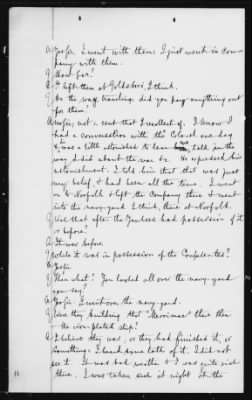 A Yes sir I went with them I just went in com-
pany with them.
Q How far?
A I left them at Goldsboro, I think.
Q On the way, traveling did you pay anything out
for them?
A No sir, not a cent that I recollect of. I know I
had a conversation with the Colonel one day
& was a little astonished to hear talk in the
way I did about the war &c. He expressed his
astonishment. I told him that that was just
my belief, & had been all the time. I went
on to Norfolk & left the Company there & went
into the navy-yard I think, there at Norfolk.
Q Was that after the Yankees had possession of it
or before?
A It was before.
Q While it was in possession of the Confederates?
A Yes sir.
Q Then what? You looked all over the navy-yard
you say?
A Yes sir I went over the navy-yard.
Q Were they building that "Merrimac" there then
the iron-plated ship?
A I believe they was, or they had finished it, or
something. I heard some talk of it. I did not
see it. It was bad weather & I was quite sick
there. I was taken sick at night in the